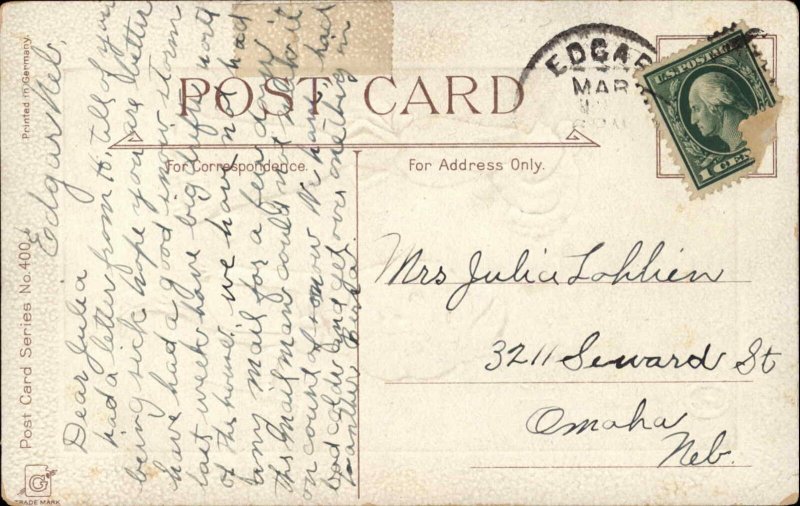 POST CARD
For Correspondence.
For Address Only.
Printed in Germany.
Post Card Series No. 400
TRADE MARK
EDGAR
MAR
U.S. POSTAGE
1 CE
Edgar Neb,
Dear Julia
had a letter from H. all of you
being sick hope you are better
have had a good snow storm
last week have big drifts north
of the house, we have not had
any mail for a few days
the mail man could not make it
on count of snow We have had
bad colds and get over one thing in
another
Mrs Julia Lohlien
3211 Seward St
Omaha
Neb.